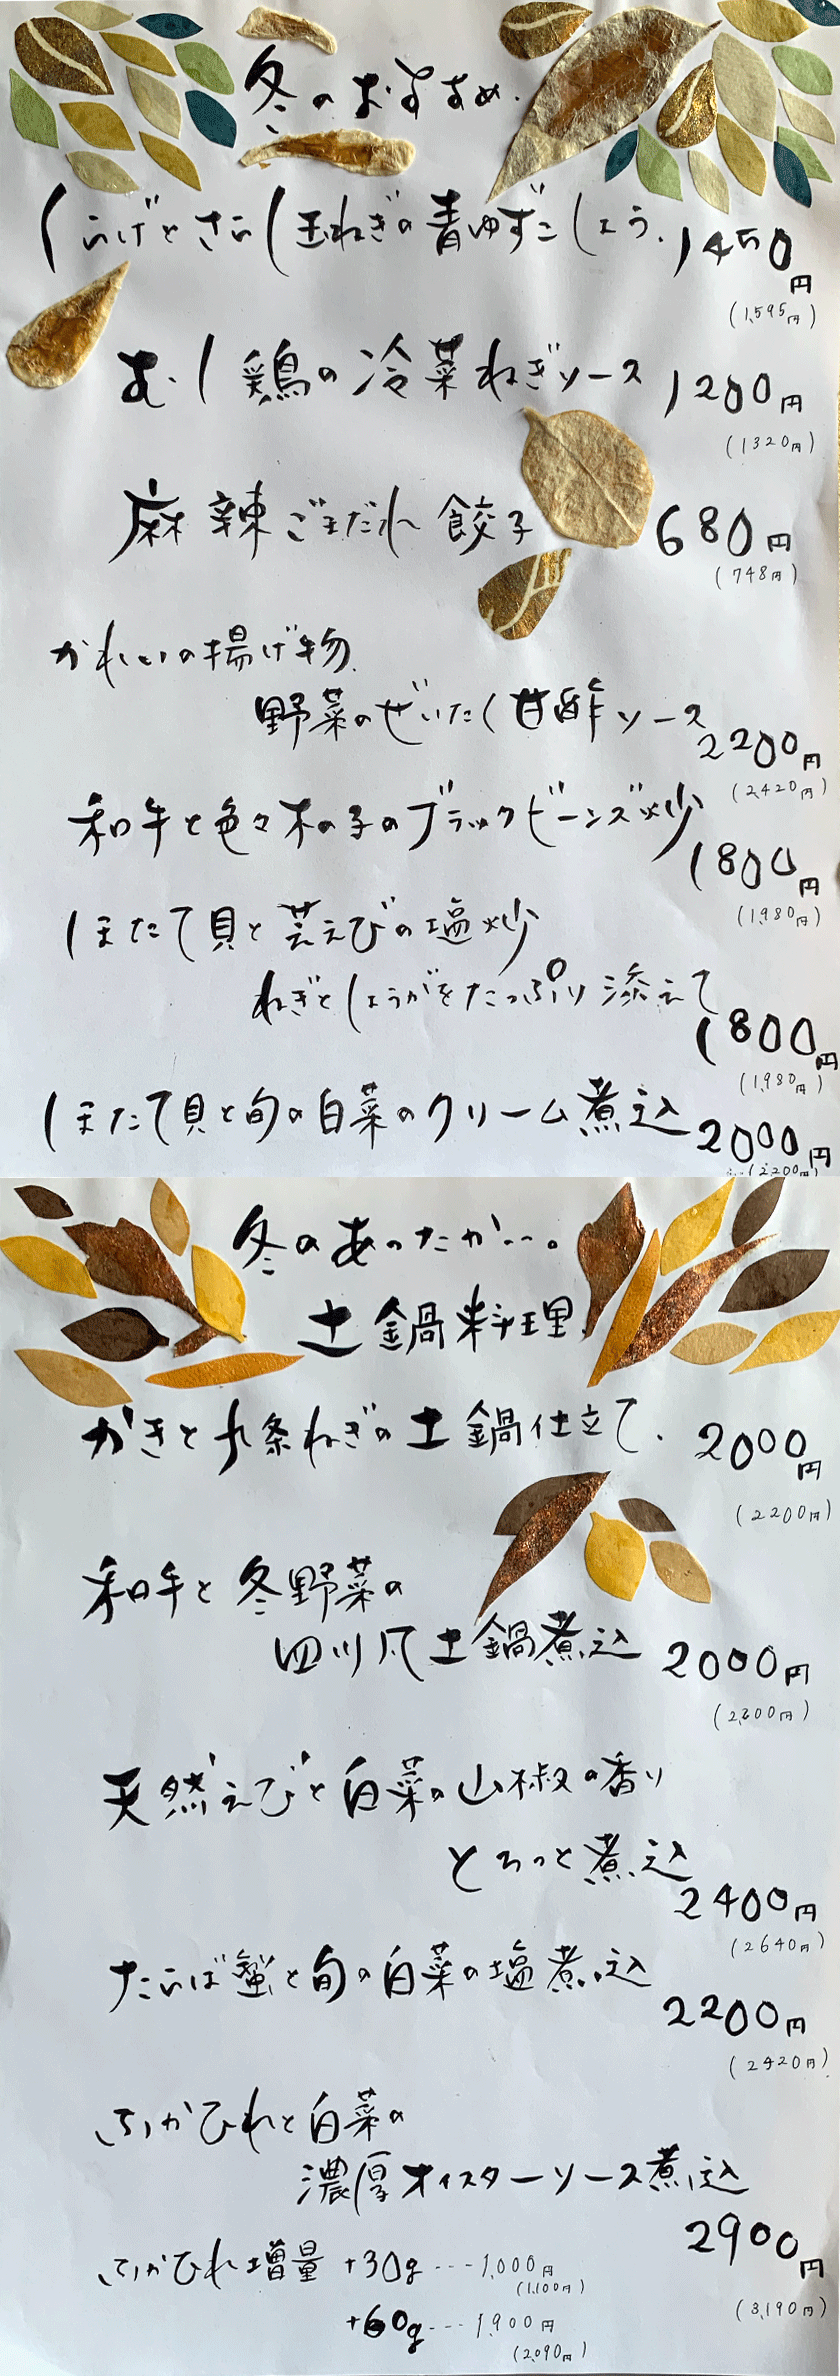 冬のおすすめ.
くらげとさらし玉ねぎの青ゆずこしょう. 1450円
(1,595円)
むし鶏の冷菜ねぎソース 1200円
(1320円)
麻辣ごまだれ餃子 680円
(748円)
かれいの揚げ物
野菜のぜいたく甘酢ソース
2200円
(2,420円)
和牛と色々木の子のブラックビーンズ炒
1800円
(1,980円)
ほたて貝と芝えびの塩炒
ねぎとしょうがをたっぷり添えて
1800円
(1,980円)
ほたて貝と旬の白菜のクリーム煮込 2000円
(2,200円)
冬のあったか…。
土鍋料理
かきと九条ねぎの土鍋仕立て. 2000円
(2200円)
和牛と冬野菜の
四川風土鍋煮込 2000円
(2,200円)
天然えびと白菜の山椒の香り
とろっと煮込
2400円
(2640円)
たらば蟹と旬の白菜の塩煮込
2200円
(2420円)
ふかひれと白菜の
濃厚オイスターソース煮込
2900円
(3,190円)
ふかひれ増量 +30g----1,000円
(1,100円)
+60g---1,900円
(2,090円)